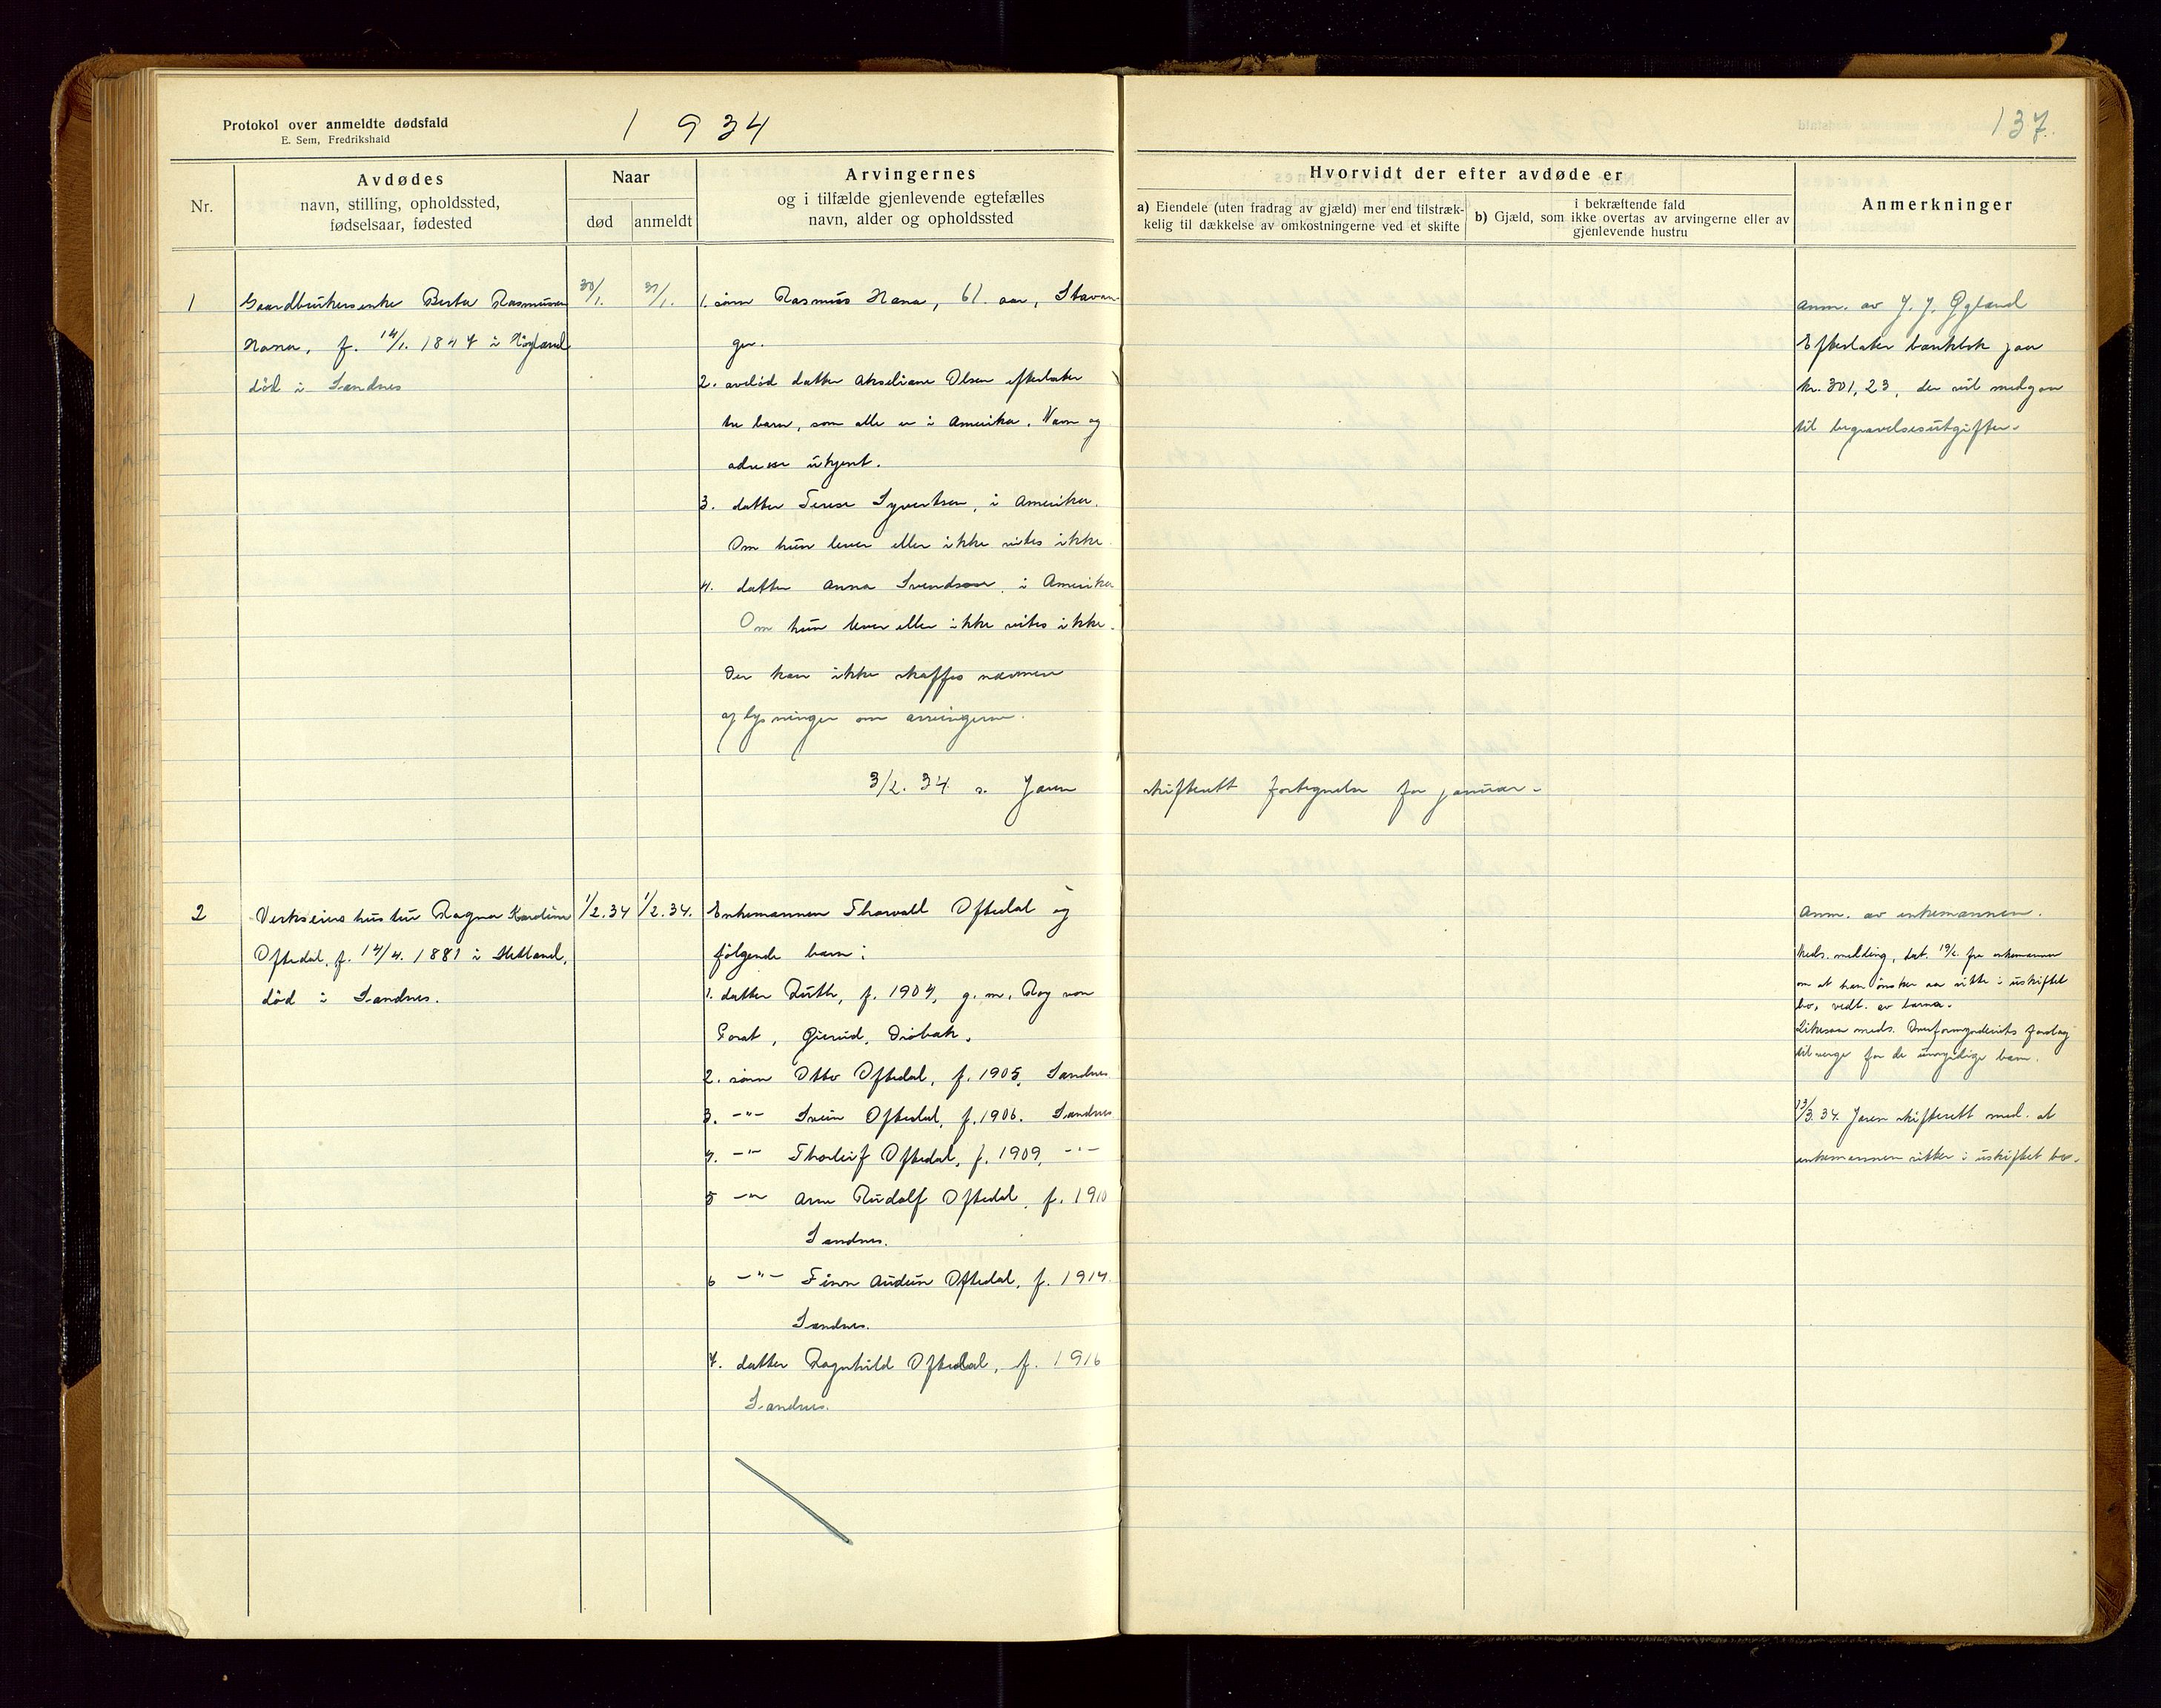 Protokol over anmeldte dødsfald
E. Sem, Fredrikshald
1934
137.
Nr.
Avdødes
navn, stilling, opholdssted,
fødselsaar, fødested
Naar
død
anmeldt
Arvingernes
og i tilfælde gjenlevende egtefælles
navn, alder og opholdssted
Hvorvidt der efter avdøde er
a) Eiendele (uten fradrag av gjæld) mer end tilstræk-
kelig til dækkelse av omkostningerne ved et skifte
i bekræftende fald
b) Gjæld, som ikke overtas av arvingerne eller av
gjenlevende hustru
Anmerkninger
1
Gaardbrukerenke Berta Rasmussen
Hana, f. 14/1. 1847 i Høyland
død i Sandnes
30/1.
31/1.
1. sønn Rasmus Hana, 61. aar, Stavan-
ger.
2. avdød datter Akseliane Olsen efterlater
tre barn, som alle er i Amerika. Navn og
adresse ukjent.
3. datter Terese Syvertsen, i Amerika.
Om hun lever eller ikke vites ikke
4. datter Anna Svendsen, i Amerika
Om hun lever eller ikke vites ikke.
Der kan ikke skaffes nærmere
oplysninger om arvingerne.
Anm. av J. J. Øgland
Efterlater bankbok paa
kr. 301,23, der vil medgaa
til begravelsesutgifter.
3/2. 34 s. Jæren skifterett fortegnelse for januar.
2
Verkseiers hustru Ragna Karoline
Oftedal, f. 14/4. 1881 i Hetland,
død i Sandnes.
1/2.34
1/2.34.
Enkemannen Thorvald Oftedal og
følgende barn:
1. datter Ruth, f. 1904, g. m. Roy von
Porat, Gjerud, Drøbak.
2. sønn Otto Oftedal, f. 1905, Sandnes
3. -"- Svein Oftedal, f. 1906. Sandnes
4. -"- Thorleif Oftedal, f. 1909, -"-
5 -"- Arne Rudolf Oftedal, f. 1910
Sandnes.
6 -"- Finn Audun Oftedal, f. 1914.
Sandnes.
7. datter Ragnhild Oftedal, f. 1916
Sandnes.
Anm. av enkemannen.
Meds. melding, dat. 19/2. fra enkemannen
om at han ønsker aa sitte i uskiftet
bo, vedt. av barna.
Likesaa meds. Overformynderiets forslag
til verge for de umyndige barn.
13/3. 34. Jæren skifterett med. at
enkemannen sitter i uskiftet bo.